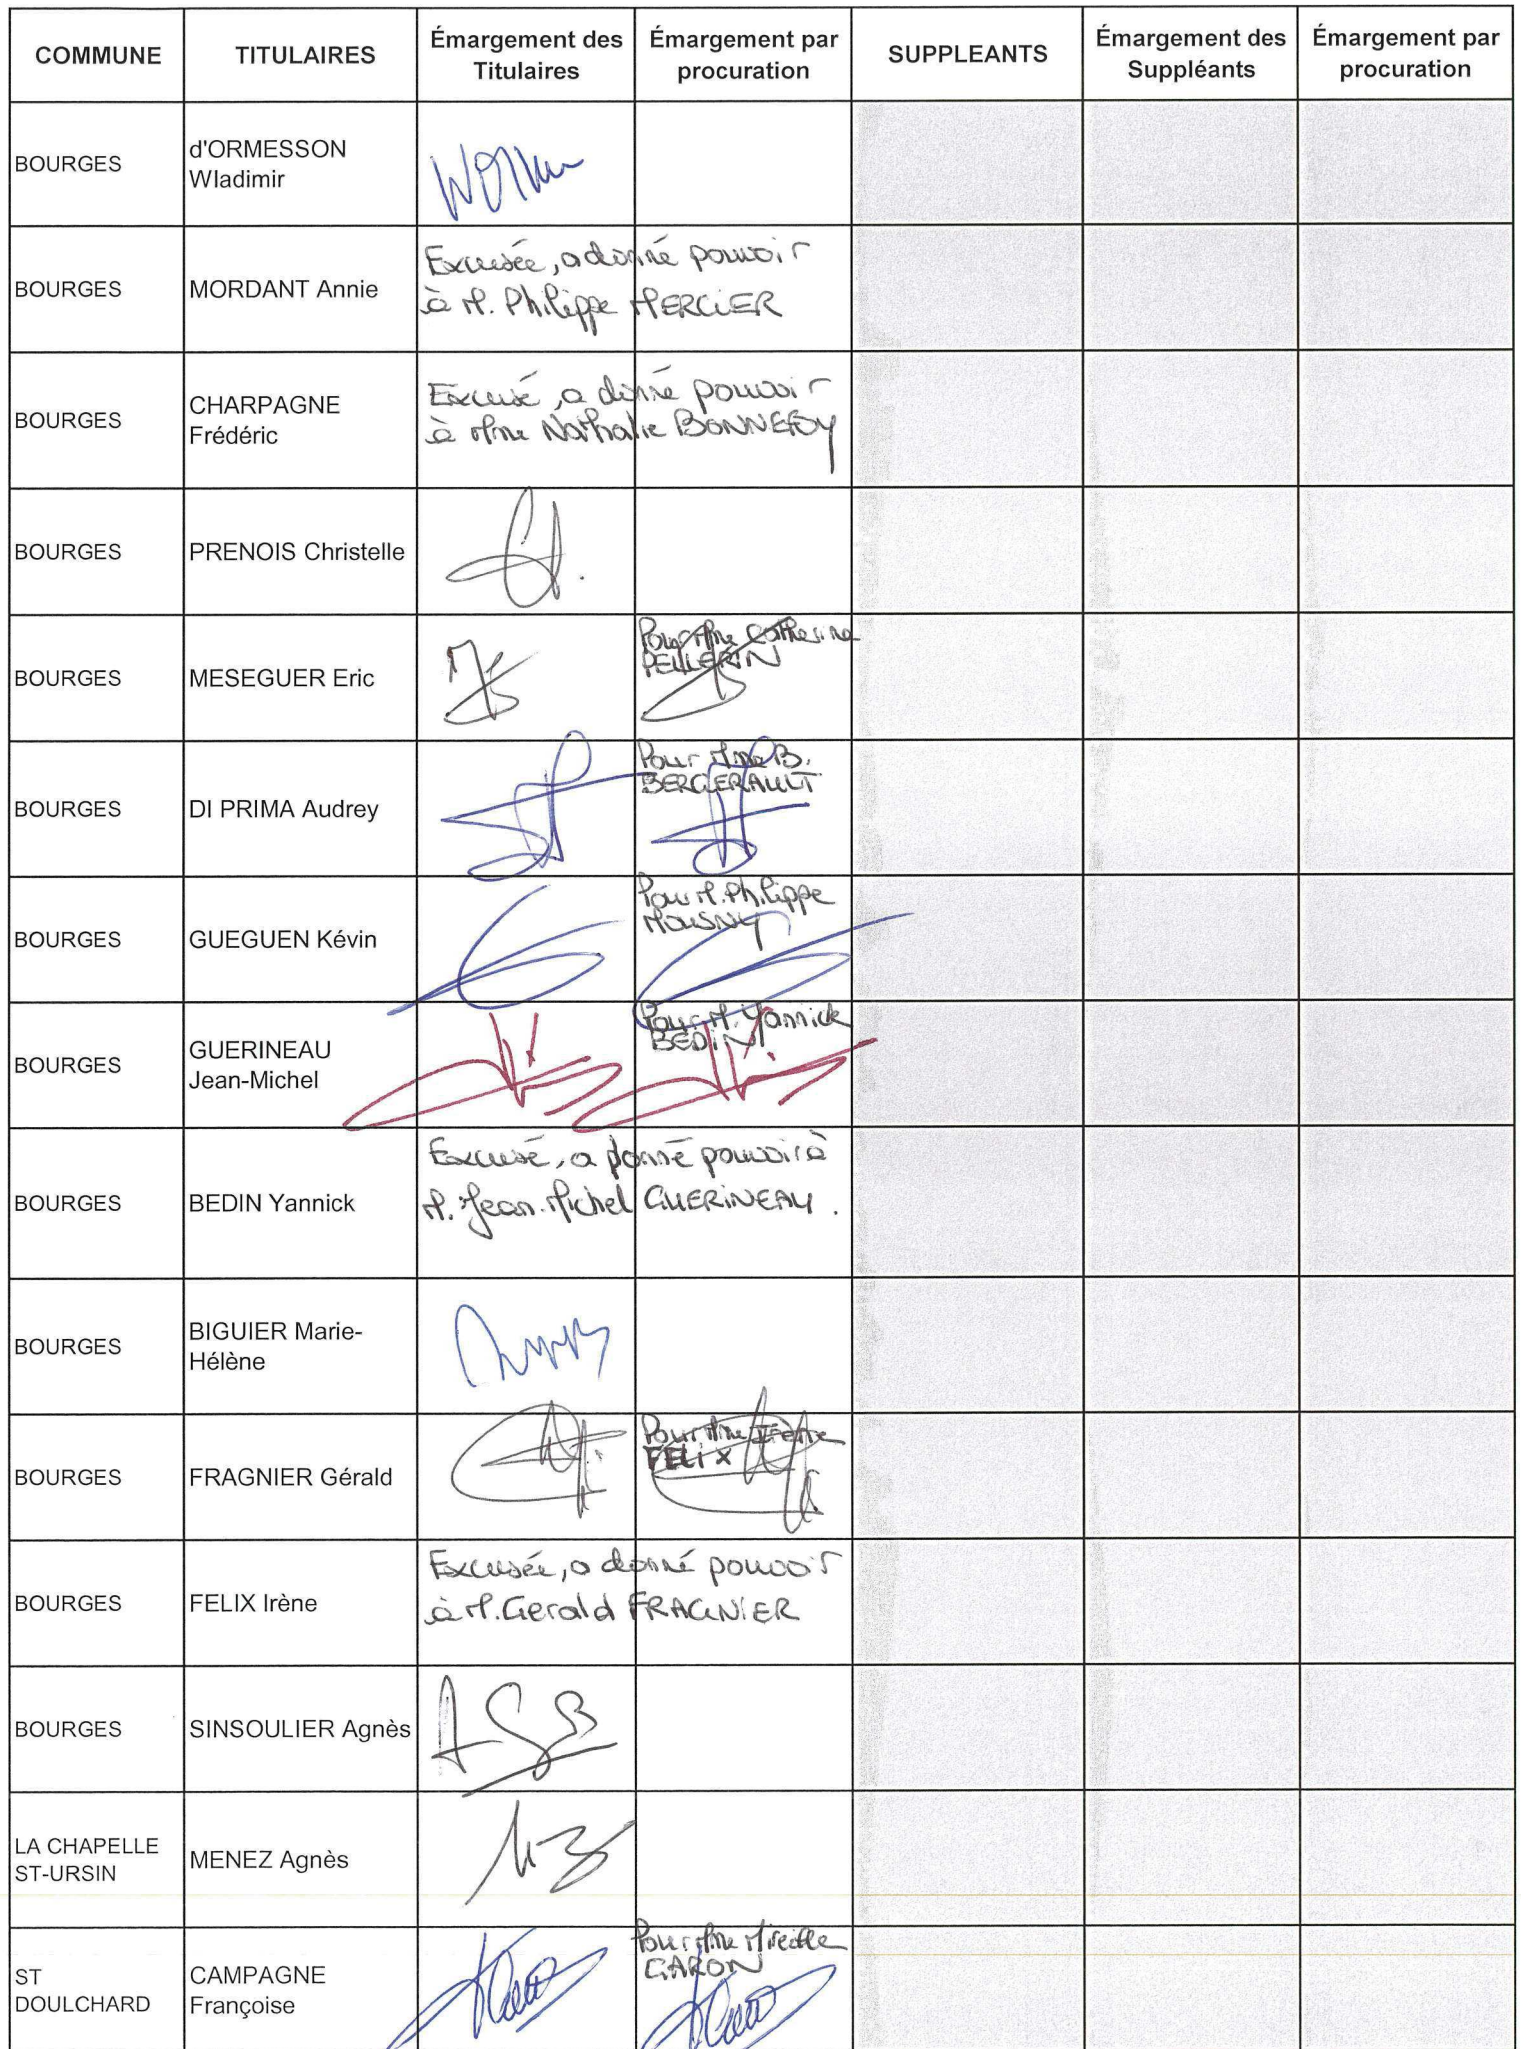 COMMUNE
TITULAIRES
Émargement des
Titulaires
Émargement par
procuration
SUPPLEANTS
Émargement des
Suppléants
Émargement par
procuration
BOURGES
d'ORMESSON
Wladimir
BOURGES
MORDANT Annie
Excusée, a donné pouvoir
à M. Philippe MERCIER
BOURGES
CHARPAGNE
Frédéric
Excusé, a donné pouvoir
à Mme Nathalie BONNEFOY
BOURGES
PRENOIS Christelle
BOURGES
MESEGUER Eric
Pour Mme Catherine
PELLERIN
BOURGES
DI PRIMA Audrey
Pour Mme B.
BERGERAULT
BOURGES
GUEGUEN Kévin
Pour M. Philippe
MOUSNY
BOURGES
GUERINEAU
Jean-Michel
Pour M. Yannick
BEDIN
BOURGES
BEDIN Yannick
Excusé, a donné pouvoir à
M. Jean-Michel GUERINEAU.
BOURGES
BIGUIER Marie-
Hélène
BOURGES
FRAGNIER Gérald
Pour Mme Irène
FELIX
BOURGES
FELIX Irène
Excusée, a donné pouvoir
à M. Gerald FRAGNIER
BOURGES
SINSOULIER Agnès
LA CHAPELLE
ST-URSIN
MENEZ Agnès
ST
DOULCHARD
CAMPAGNE
Françoise
Pour Mme Mireille
GARON